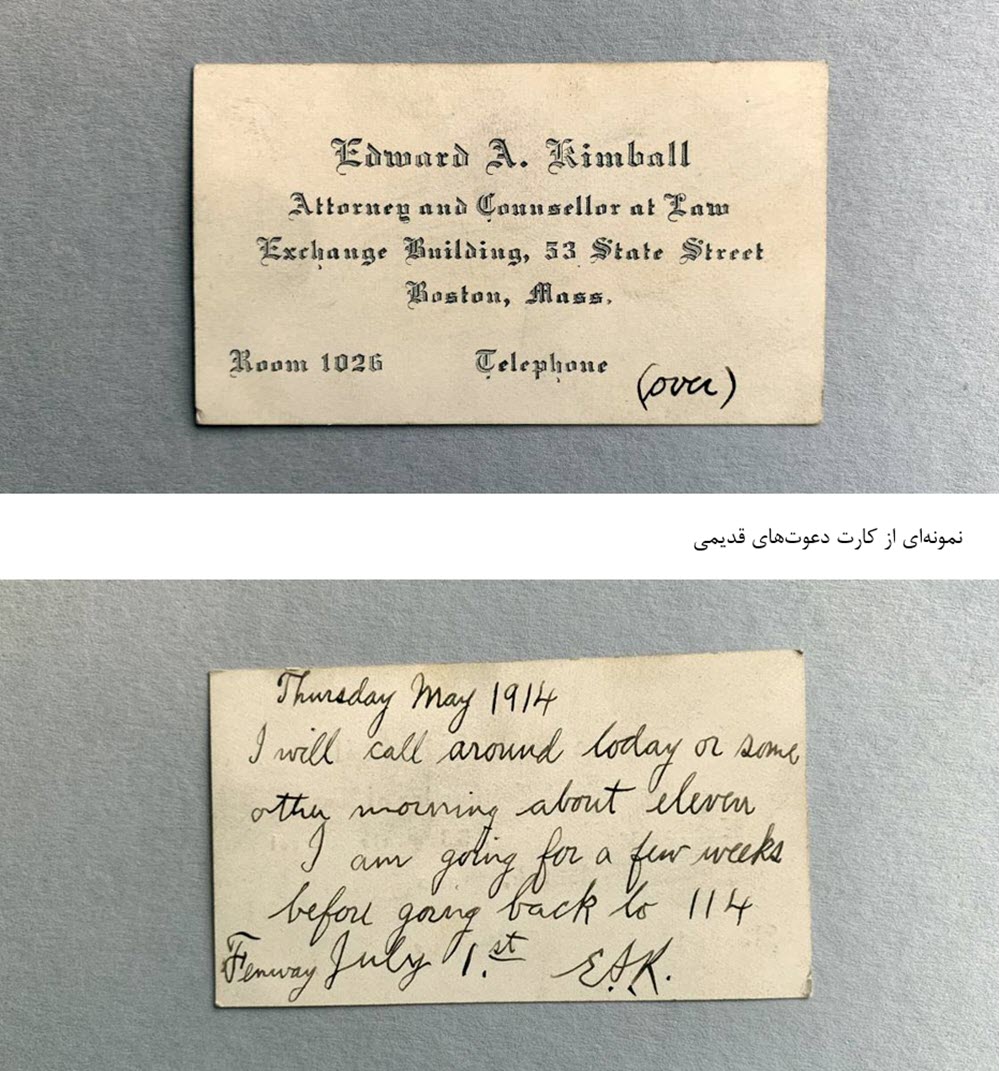 Edward A. Kimball
Attorney and Counsellor at Law
Exchange Building, 53 State Street
Boston, Mass.
Room 1026 Telephone (over)
نمونه‌ای از کارت دعوت‌های قدیمی
Thursday May 1914
I will call around today or some
other morning about eleven
I am going for a few weeks
before going back to 114
Fenway July 1.st E.A.K.